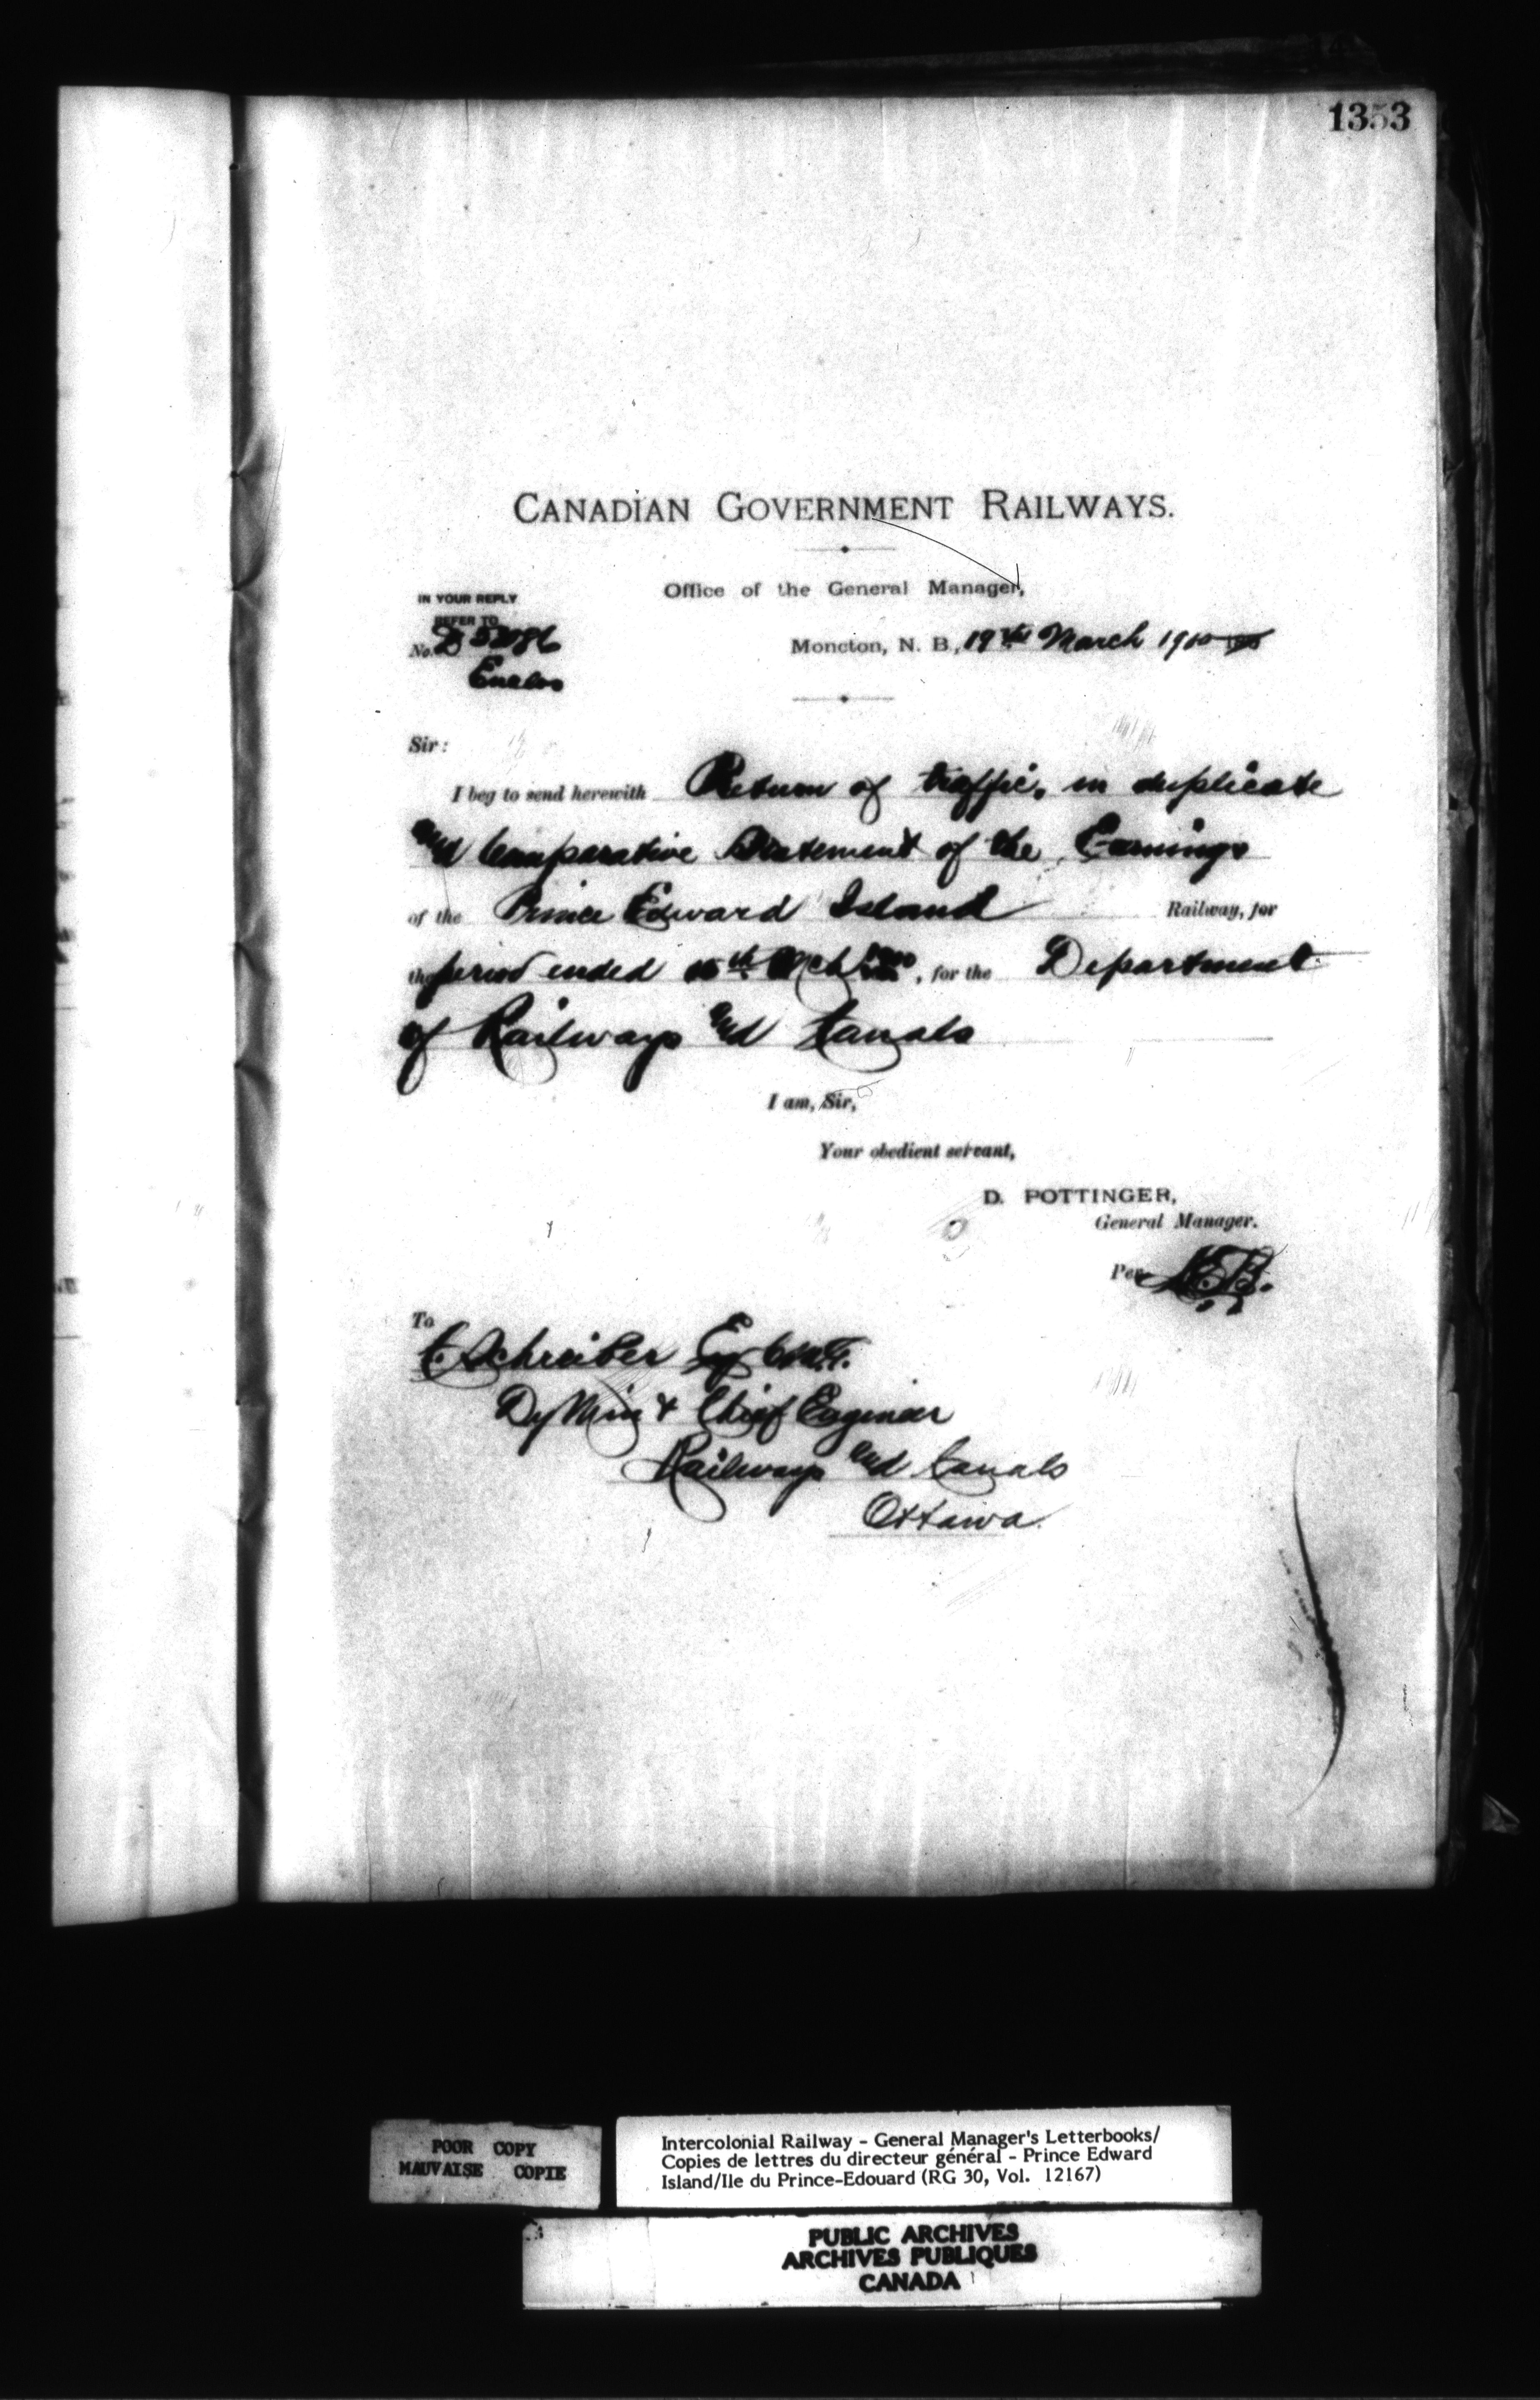 1353
CANADIAN GOVERNMENT RAILWAYS.
Office of the General Manager,
IN YOUR REPLY
REFER TO
No.
Enclos
Moncton, N. B., 19th March 1900
Sir:
I beg to send herewith Return of traffic, in duplicate
and Comparative Statement of the Earnings
of the Prince Edward Island Railway, for
the period ended 15th Mch 1900, for the Department
of Railways and Canals
I am, Sir,
Your obedient servant,
D. POTTINGER,
General Manager.
Per
To
C. Schreiber Esq C.M.G.
Dy Min & Chief Engineer
Railways and Canals
Ottawa.
POOR COPY
MAUVAISE COPIE
Intercolonial Railway - General Manager's Letterbooks/
Copies de lettres du directeur général - Prince Edward
Island/Ile du Prince-Edouard (RG 30, Vol. 12167)
PUBLIC ARCHIVES
ARCHIVES PUBLIQUES
CANADA